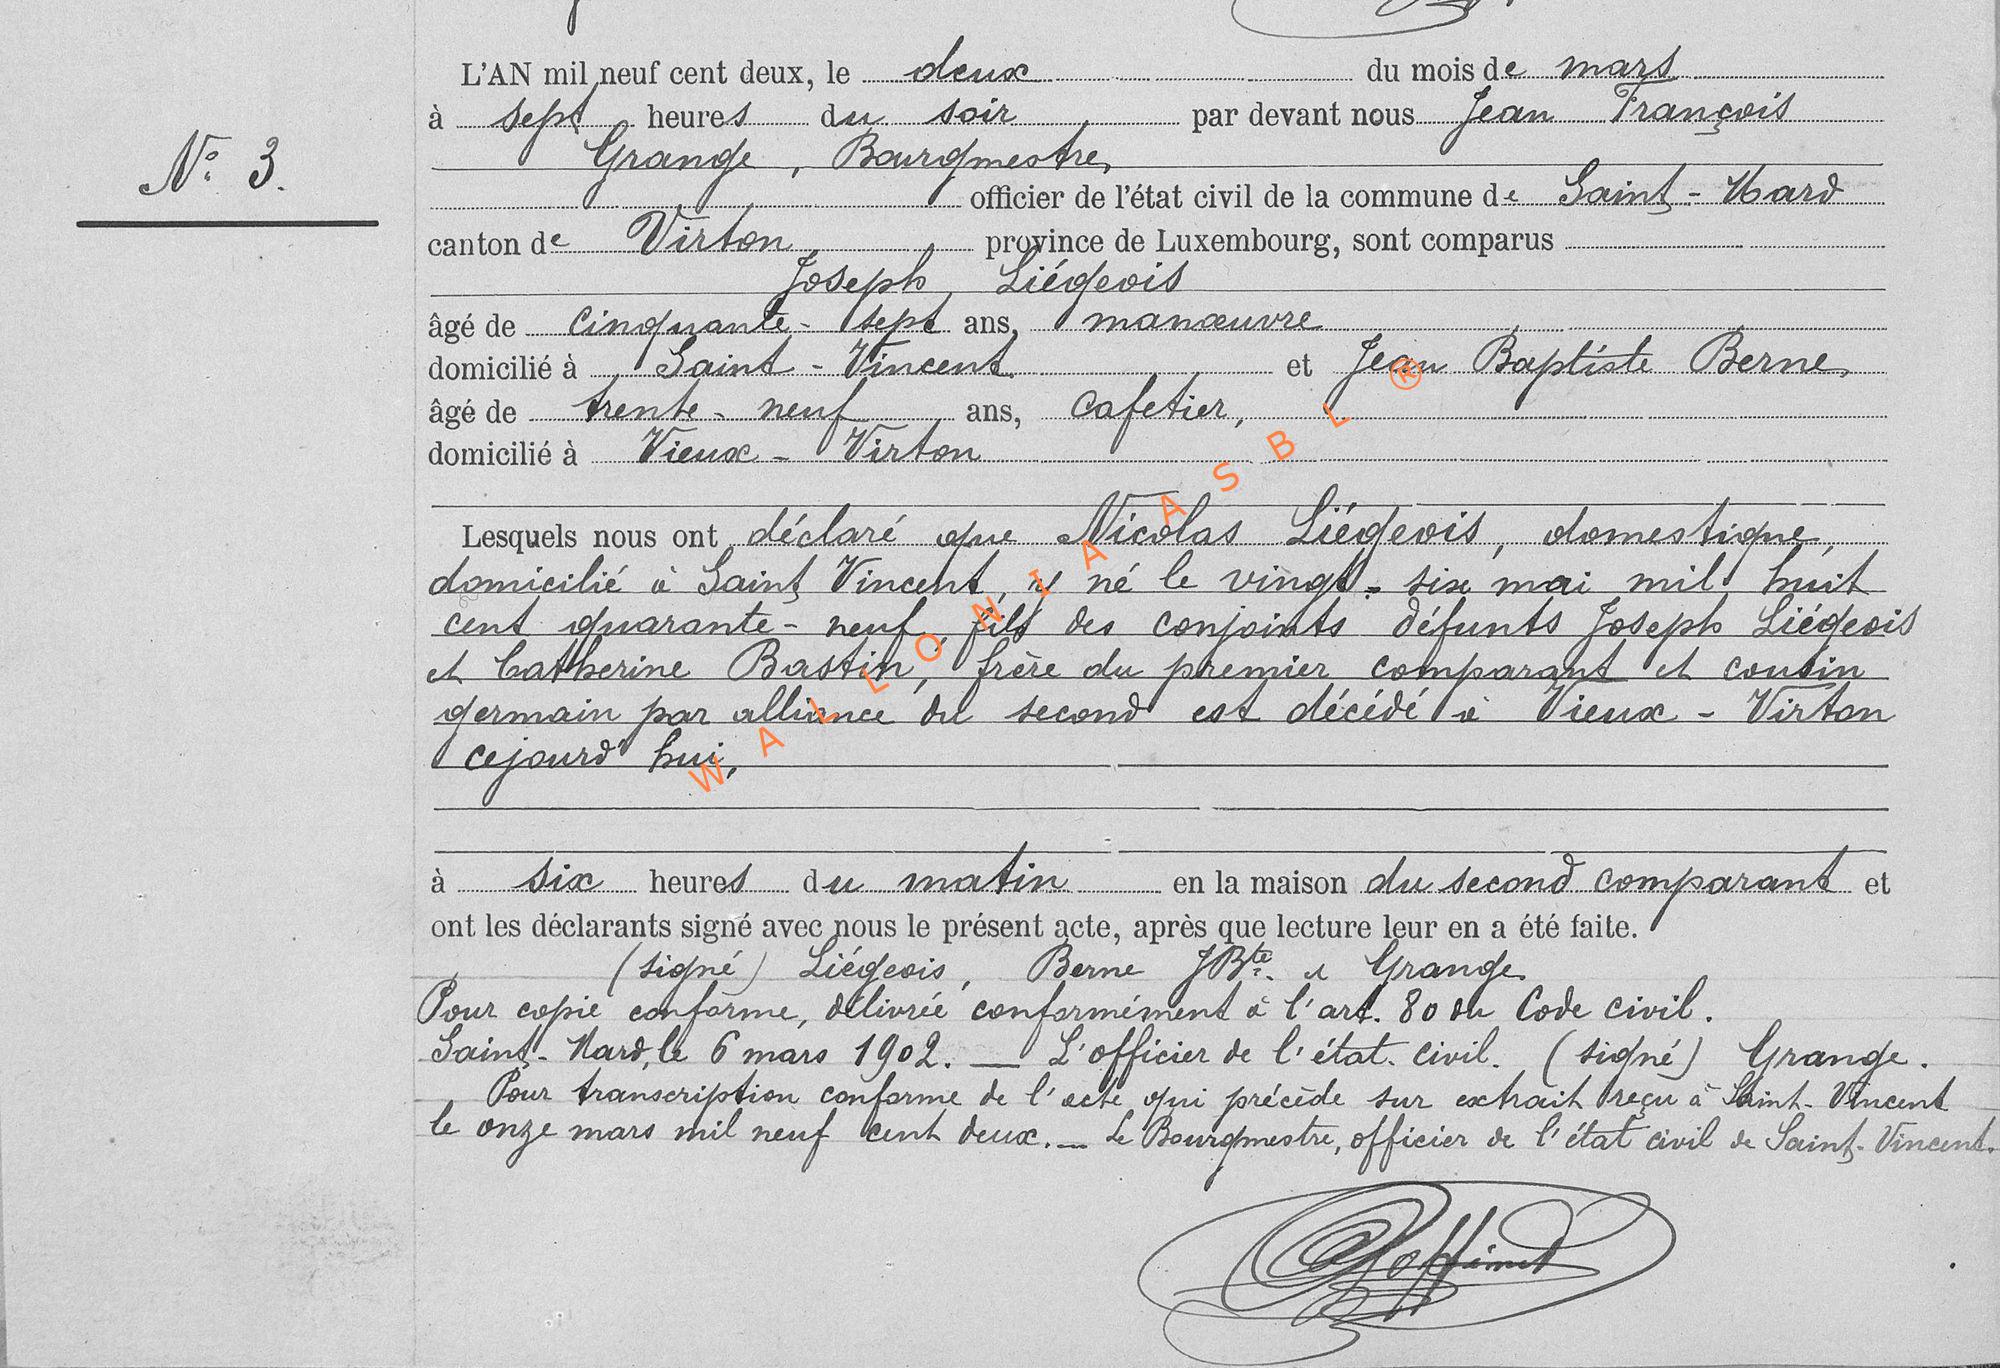 L'AN mil neuf cent deux, le deux du mois de mars
à sept heures du soir par devant nous Jean François
N° 3.
Grange, Bourgmestre,
officier de l'état civil de la commune de Saint-Mard
canton de Virton province de Luxembourg, sont comparus
Joseph Liégeois
âgé de cinquante-sept ans, manœuvre
domicilié à Saint-Vincent et Jean Baptiste Berne,
âgé de trente-neuf ans, cafetier,
domicilié à Vieux-Virton
Lesquels nous ont déclaré que Nicolas Liégeois, domestique,
domicilié à Saint Vincent, y né le vingt-six mai mil huit
cent quarante-neuf, fils des conjoints défunts Joseph Liégeois
et Catherine Bastin, frère du premier comparant et cousin
germain par alliance du second est décédé à Vieux-Virton
cejourd'hui,
à six heures du matin en la maison du second comparant et
ont les déclarants signé avec nous le présent acte, après que lecture leur en a été faite.
(signé) Liégeois, Berne JBte. et Grange
Pour copie conforme, délivrée conformément à l'art. 80 du Code civil.
Saint-Mard, le 6 mars 1902. — L'officier de l'état-civil. (signé) Grange.
Pour transcription conforme de l'acte qui précède sur extrait reçu à Saint-Vincent
le onze mars mil neuf cent deux. — Le Bourgmestre, officier de l'état civil de Saint-Vincent.
WALLONIA ASBL ®